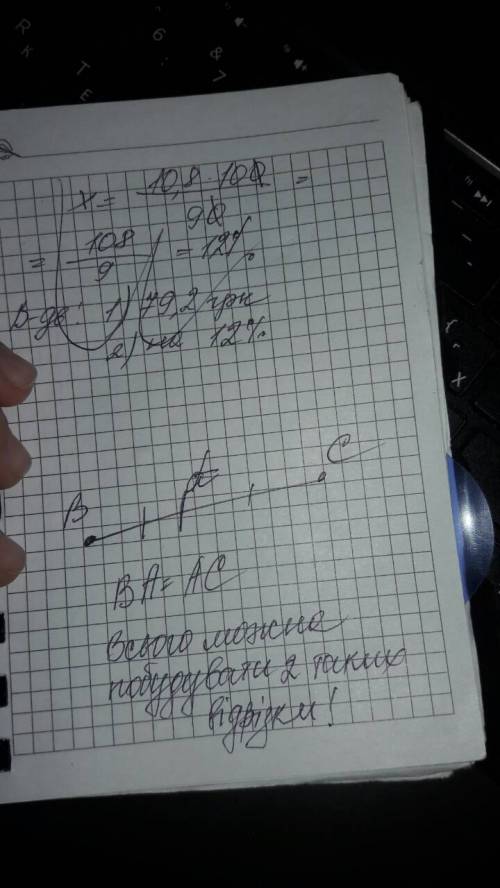 x = 10,8 · 100 / 90 =
= 108 / 9 = 12%
В-дь: 1) 79,2 грн
2) на 12%
B A C
BA = AC
Всього можна
побудувати 2 таких
відрізки!